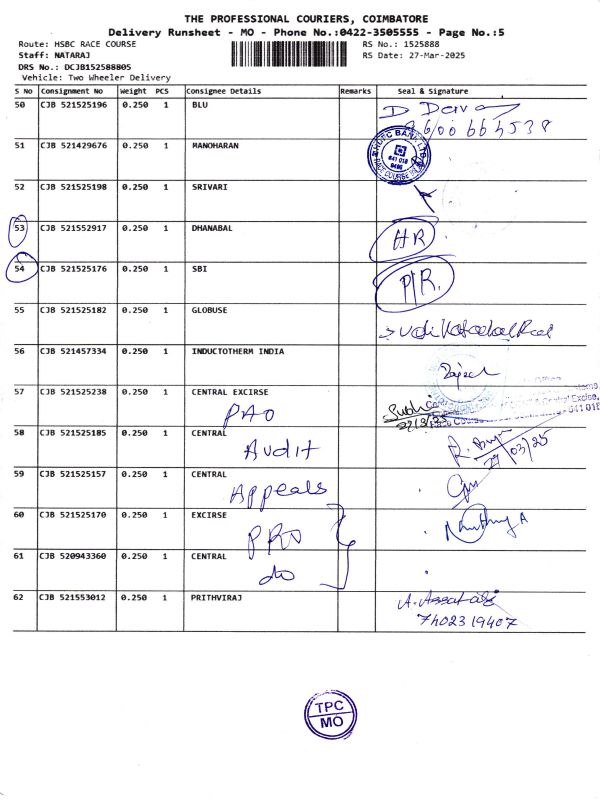 THE PROFESSIONAL COURIERS, COIMBATORE
Delivery Runsheet - MO - Phone No.:0422-3505555 - Page No.:5
Route: HSBC RACE COURSE
RS No.: 1525888
Staff: NATARAJ
RS Date: 27-Mar-2025
DRS No.: DCJB152588805
Vehicle: Two Wheeler Delivery
S No Consignment No Weight PCS Consignee Details Remarks Seal & Signature
50 CJB 521525196 0.250 1 BLU
51 CJB 521429676 0.250 1 MANOHARAN
HDFC BANK LTD
641 018
RACE COURSE
52 CJB 521525198 0.250 1 SRIVARI
53 CJB 521552917 0.250 1 DHANABAL HR
54 CJB 521525176 0.250 1 SBI P/R.
55 CJB 521525182 0.250 1 GLOBUSE
56 CJB 521457334 0.250 1 INDUCTOTHERM INDIA
57 CJB 521525238 0.250 1 CENTRAL EXCIRSE
PAO
58 CJB 521525185 0.250 1 CENTRAL
Audit
27/03/25
59 CJB 521525157 0.250 1 CENTRAL
Appeals
60 CJB 521525170 0.250 1 EXCIRSE
PRO
61 CJB 520943360 0.250 1 CENTRAL
do
62 CJB 521553012 0.250 1 PRITHVIRAJ
7402319407
TPC
MO